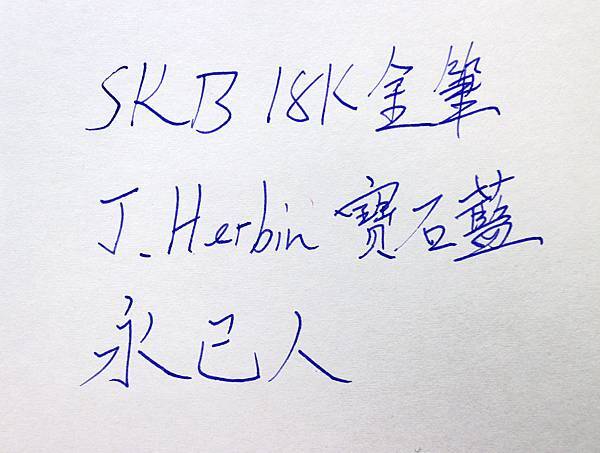 SKB 18K金筆
J. Herbin 寶石藍
永已人